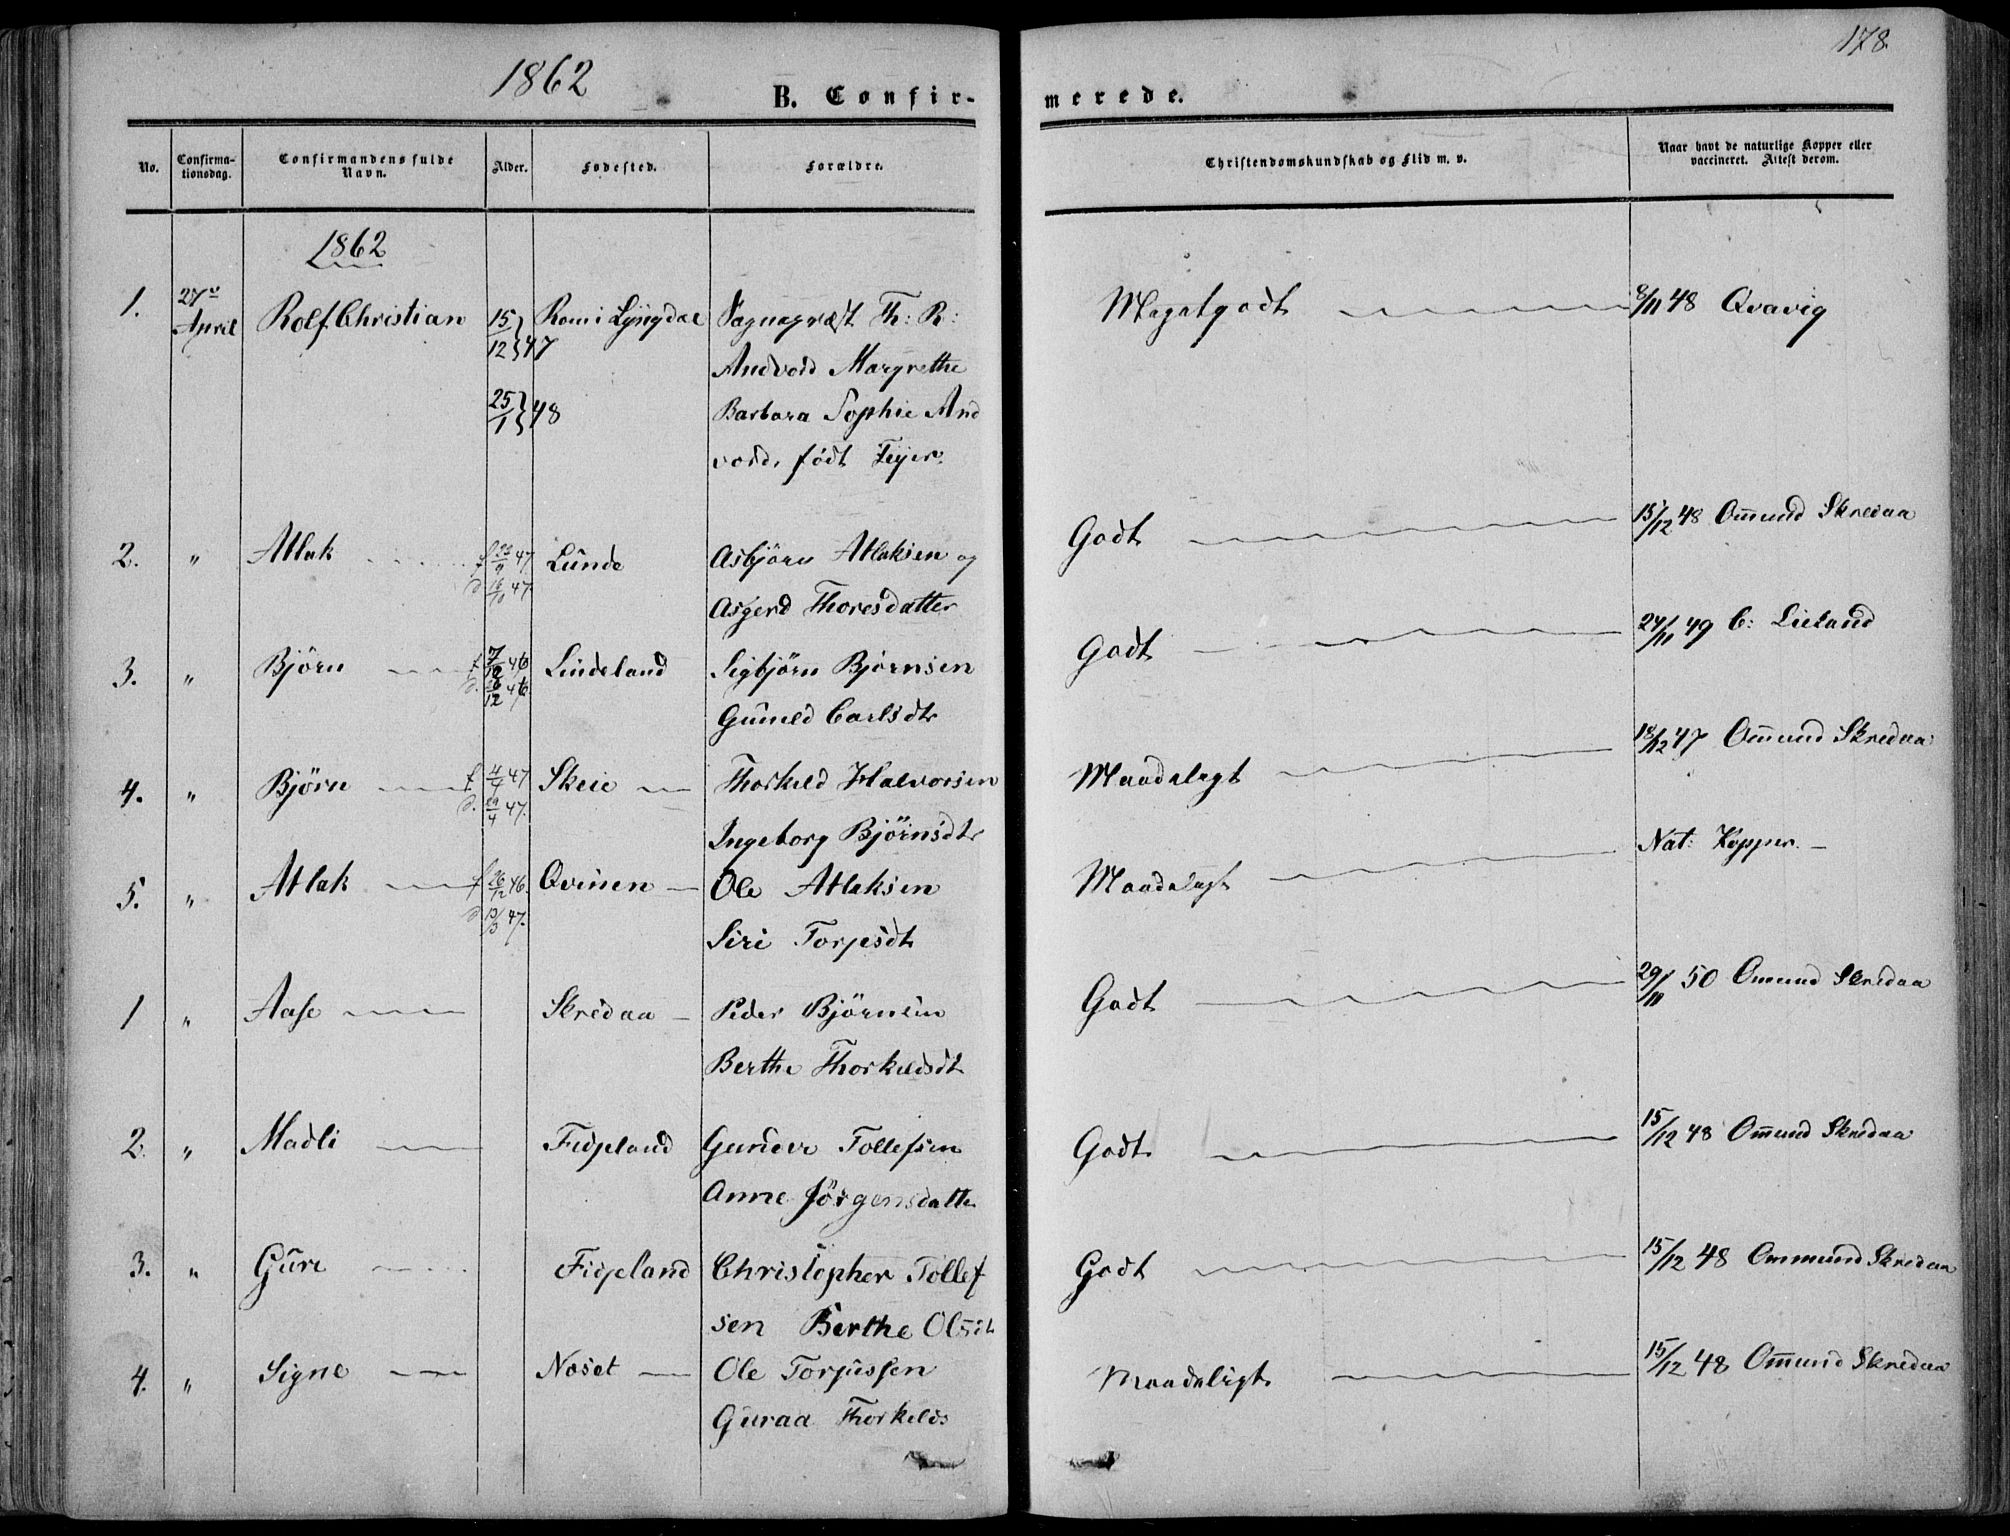 1862
178.
B. Confir-
merede.
No.
Confirma-
tionsdag.
Confirmandens fulde
Navn.
Alder.
Fødested.
Forældre.
Christendomskundskab og Flid m. v.
Naar havt de naturlige Kopper eller
vaccineret. Attest derom.
1862
1. 27de April Rolf Christian 15/12 47 Rom i Lyngdal Sognepræst Th: R: Megetgodt 8/11 48 Qvavig
Andvord Margrethe
25/1 48 Barbara Sophie And
vord, født Feyer.
2. " Atlak f 23/9 47 Lunde Asbjörn Atlaksen og Godt 15/12 48 Omund Skredaa
d. 16/10 47 Asgerd Thoresdatter
3. " Björn f 7/12 46 Lindeland Sigbjörn Bjørnsen Godt 24/11 49 C: Lieland
d. 16/12 46 Guneld Carlsdt
4. " Björn f 11/4 47 Skeie Thorkild Halvorsen Maadeligt 18/12 47 Omund Skredaa
d. 29/4 47. Ingeborg Björnsdt
5. " Atlak f 26/12 46. Qvinen Ole Atlaksen Maadeligt Nat: Kopper.
d 13/3 47. Siri Torjesdt
1 " Aase Skredaa Peder Björnsen Godt 29/11 50 Omund Skredaa
Berthe Thorkildsdt
2. " Madli Fidjeland Gunder Tollefsen Godt 15/12 48 Omund Skredaa
Anne Jörgensdatter
3. " Guri Fidjeland Christopher Tollef Godt 15/12 48 Ommund Skredaa
sen Berthe Olsdt
4. " Signe Neset Ole Torjussen Maadeligt 15/12 48 Omund Skredaa
Guraa Thorkilds